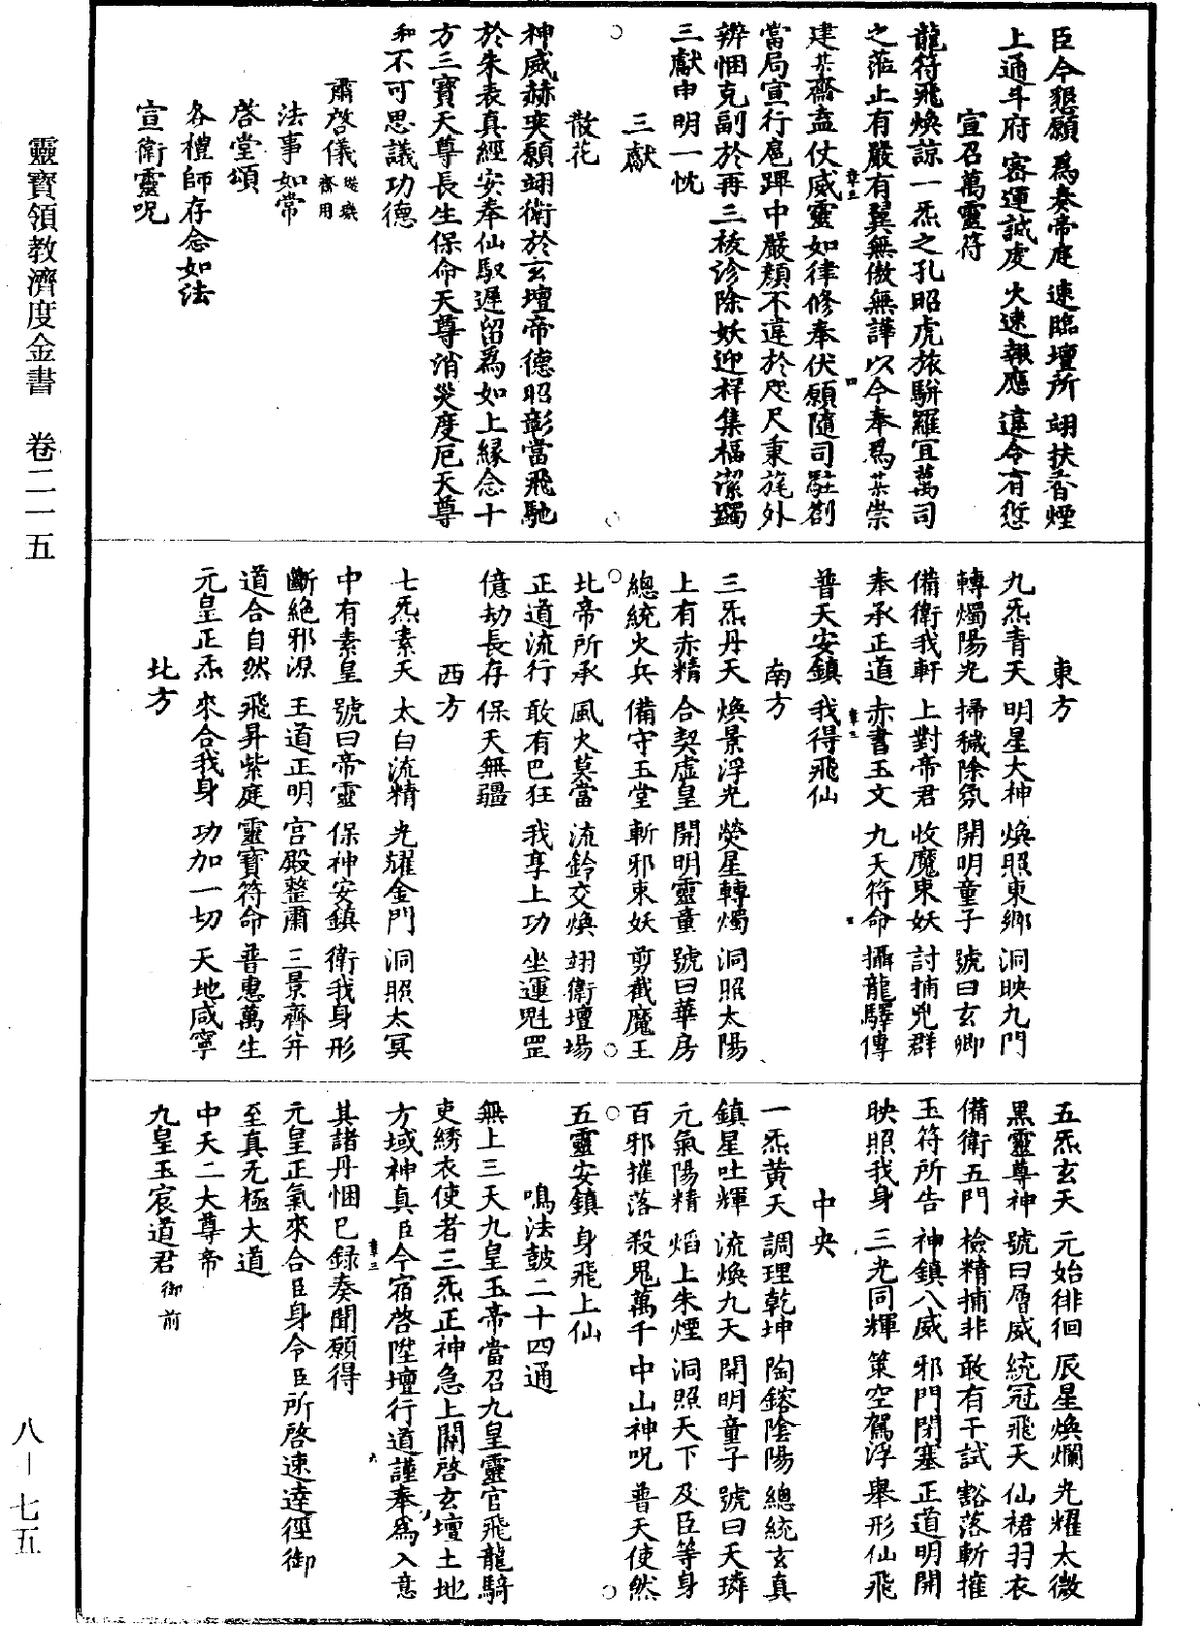 臣今懇願 爲奏帝庭 速臨壇所 翊扶香煙
上通斗府 密運誠虔 火速報應 違令有愆
宣召萬靈符
龍符飛煥諒一炁之孔昭虎旅駢羅宜萬司
之蒞止有嚴有翼無儆無譁以今奉爲某崇
建某齋盍仗威靈如律修奉伏願隨司駐劄
當局宣行扈蹕中嚴顏不違於咫尺秉旄外
辨悃克副於再三祓診除妖迎祥集福潔蠲
三獻申明一忱
三獻
散花
神威赫奕願翊衛於玄壇帝德昭彰當飛馳
於朱表真經安奉仙馭遲留爲如上緣念十
方三寶天尊長生保命天尊消災度厄天尊
和不可思議功德
肅啓儀璇璣齋用
法事如常
啓堂頌
各禮師存念如法
宣衛靈呪
東方
九炁青天 明星大神 煥照東鄉 洞映九門
轉燭陽光 掃穢除氛 開明童子 號曰玄卿
備衛我軒 上對帝君 收魔束妖 討捕兇群
奉承正道 赤書玉文 九天符命 攝龍驛傳
普天安鎮 我得飛仙
南方
三炁丹天 煥景浮光 熒星轉燭 洞照太陽
上有赤精 合契虛皇 開明靈童 號曰華房
總統火兵 備守玉堂 斬邪束妖 剪截魔王
北帝所承 風火莫當 流鈴交煥 翊衛壇場
正道流行 敢有巴狂 我享上功 坐運魁罡
億劫長存 保天無疆
西方
七炁素天 太白流精 光耀金門 洞照太冥
中有素皇 號曰帝靈 保神安鎮 衛我身形
斷絕邪源 王道正明 宮殿整肅 三景齊并
道合自然 飛昇紫庭 靈寶符命 普惠萬生
元皇正炁 來合我身 功加一切 天地咸寧
北方
五炁玄天 元始徘徊 辰星煥爛 光耀太微
黑靈尊神 號曰層威 統冠飛天 仙裙羽衣
備衛五門 檢精捕非 敢有干試 豁落斬摧
玉符所告 神鎮八威 邪門閉塞 正道明開
映照我身 三光同輝 策空駕浮 舉形仙飛
中央
一炁黃天 調理乾坤 陶鎔陰陽 總統玄真
鎮星吐輝 流煥九天 開明童子 號曰天璘
元氣陽精 焰上朱煙 洞照天下 及臣等身
百邪摧落 殺鬼萬千 中山神呪 普天使然
五靈安鎮 身飛上仙
鳴法鼓二十四通
無上三天九皇玉帝當召九皇靈官飛龍騎
吏綉衣使者三炁正神急上關啓玄壇土地
方域神真臣今宿啓陞壇行道謹奉爲入意
其諸丹悃已錄奏聞願得
元皇正氣來合臣身令臣所啓速達徑御
至真无極大道
中天二大尊帝
九皇玉宸道君御前
靈寶領教濟度金書 卷二一五
八－七五